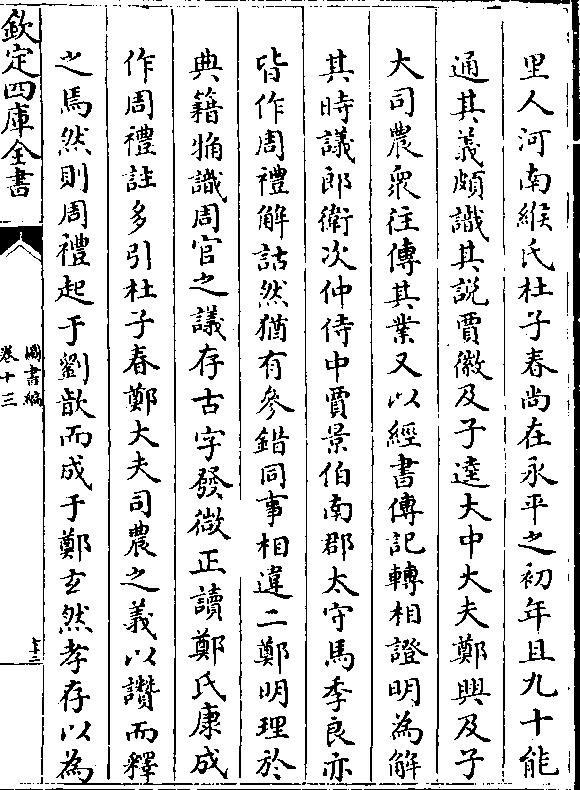 里人河南緱氏杜子春尚在永平之初年且九十能
通其義頗識其説賈徽及子逵大中大夫鄭興及子
大司農衆往傳其業又以經書傳記轉相證明為解
其時議郎衛次仲侍中賈景伯南郡太守馬季良亦
皆作周禮解詁然猶有參錯同事相違二鄭明理於
典籍觕識周官之議存古字發微正讀鄭氏康成
作周禮註多引杜子春鄭大夫司農之義以讚而釋
之焉然則周禮起于劉歆而成于鄭玄然孝存以為
欽定四庫全書
圖書編
卷十三